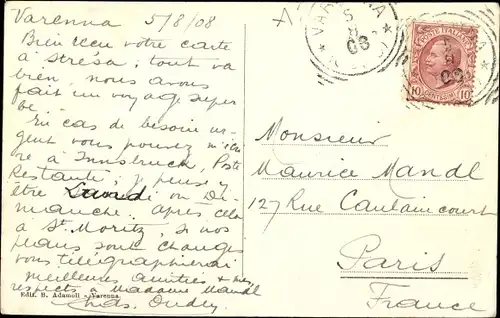 Varenna 5/8/08
Bien reçu votre carte
à Stresa; tout va
bien, nous avons
fait un voyage super
be.
En cas de besoin ur-
gent vous pouvez m'écri
re à Innsbruck, Poste
Restante; je peux y
être Lundi ou Di-
manche. Après cela
à St. Moritz, si nos
plans sont changés
vous télégraphierai
meilleures amitiés & mes
respects à Madame Mandl
Chas. Oudry
Edit. B. Adamoli - Varenna.
VARENNA
08
POSTE ITALIANE
10 CENTESIMI 10
Monsieur
Maurice Mandl
127 Rue Caulaincourt
Paris
France